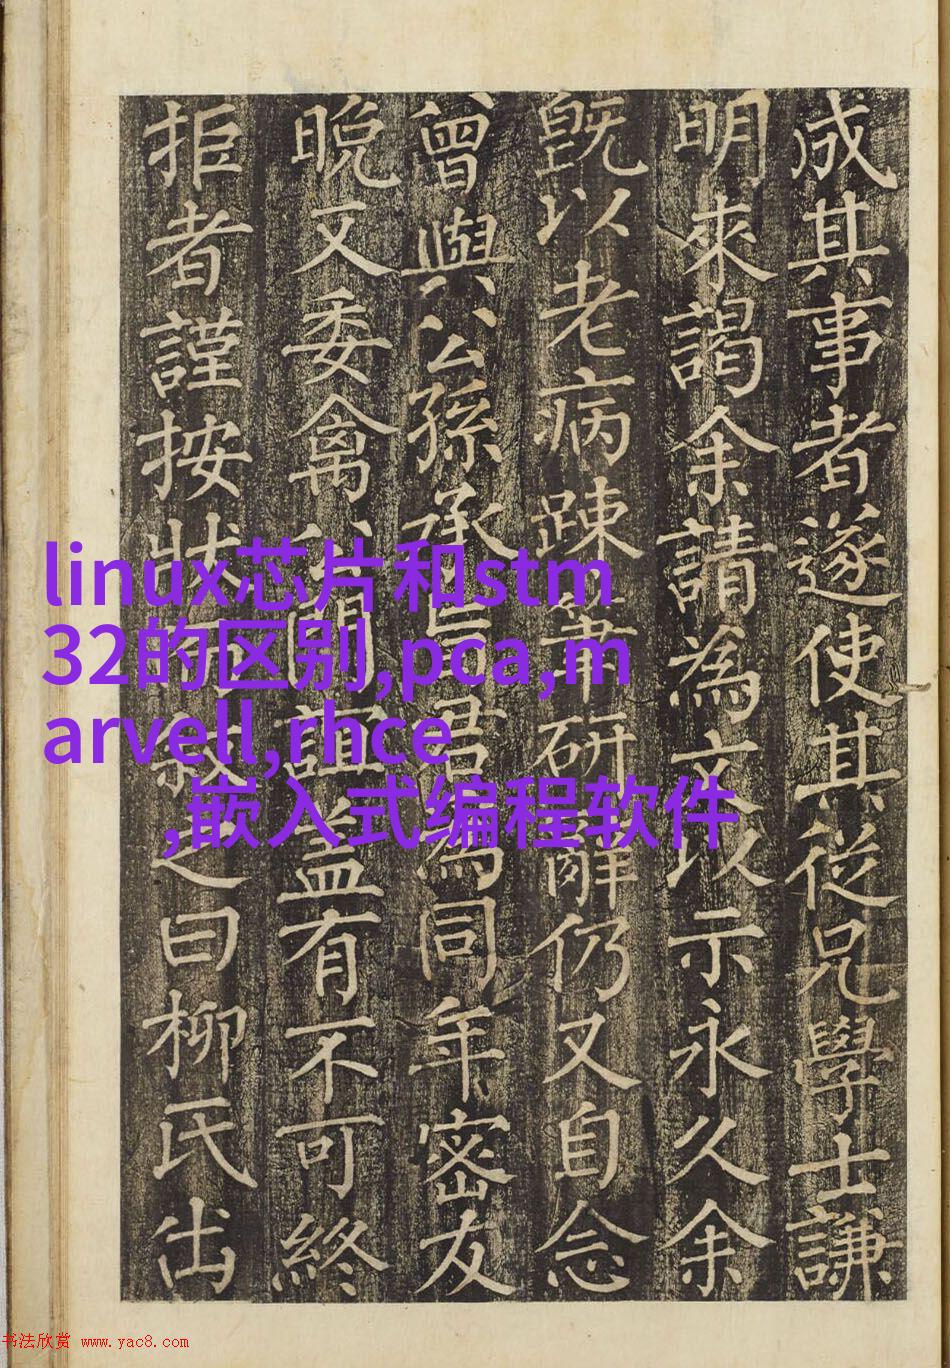 成其事者遂使其從兄學士謙
明來謁余請為文以示永久余
旣以老病踈筆研辭仍又自念
曾與公孫承旨君為同年密友
晚又委禽公閒誼盖有不可終
拒者謹按狀而叙之曰柳氏出
linux芯片和stm
32的区别,pca,m
arvell,rhce
,嵌入式编程软件
书法欣赏 www.yac8.com